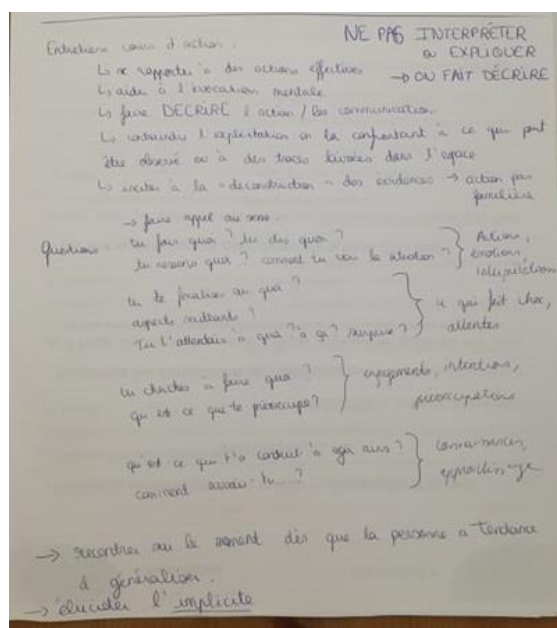 NE PAS INTERPRÉTER
OU EXPLIQUER
→ ON FAIT DÉCRIRE
Entretiens cours d'action :
↳ se rapporter à des actions effectives
↳ aide à l'évocation mentale
↳ faire DECRIRE l'action / les communications
↳ l'explicitation en la confrontant à ce qui peut
être observé ou à des traces laissées dans l'espace
↳ inciter à la "déconstruction" des évidences → action pas
familière
→ faire appel au sens.
Questions tu fais quoi ? tu dis quoi ?
tu ressens quoi ? comment tu vois la situation ? } Actions,
émotions,
interprétations
tu te focalises sur quoi ?
aspects saillants ?
Tu t'attendais à quoi ? à ça ? surprise ? } ce qui fait choc,
attentes
tu cherches à faire quoi ?
qu'est ce qui te préoccupe ? } engagements, intentions,
préoccupations
qu'est-ce qui t'a conduit à agir ainsi ?
comment savais-tu...? } connaissances,
apprentissage
→ recentrer sur le moment dès que la personne a tendance
à généraliser.
→ élucider l'implicite